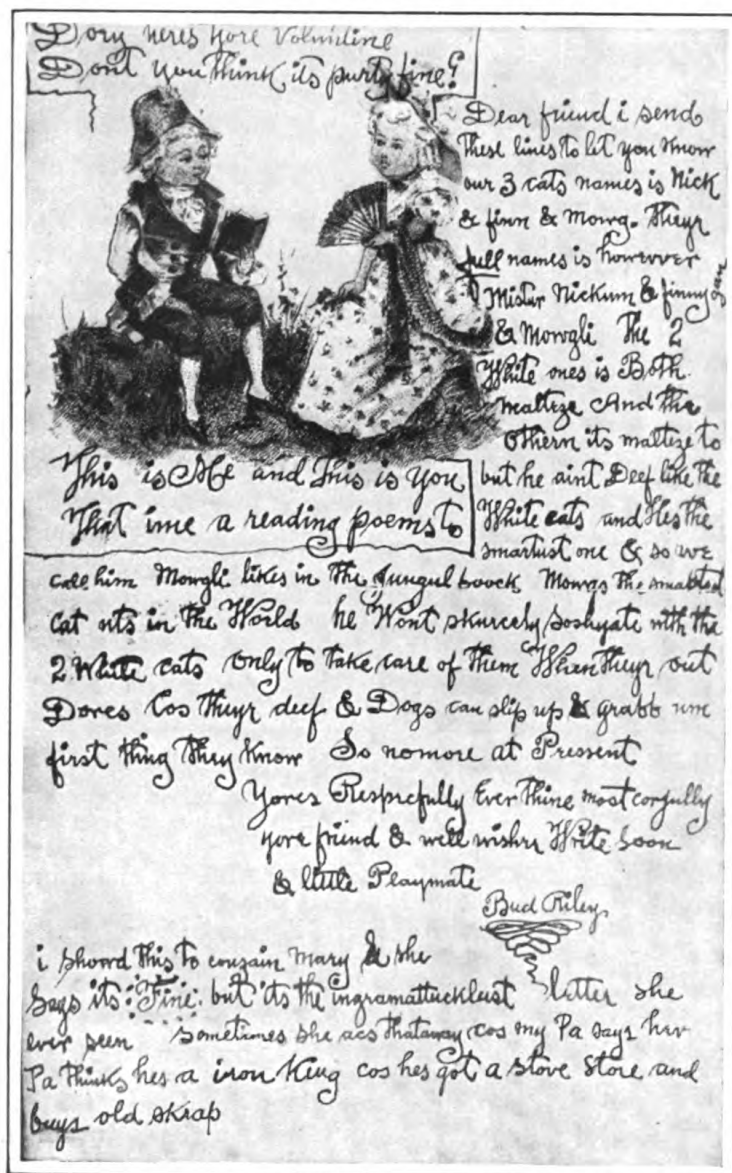 Dory heres yore Voluntine
Dont you think its purty fine?
Dear friend i send
These lines to let you know
our 3 cats names is Nick
& finn & Mowg. Theyr
full names is howevver
Mister Nickum & finnygan
& Mowgli The 2
White ones is Both
malteze And the
othern its malteze to
but he aint Deef like the
White cats and Hes the
smartust one & so we
This is Me and This is You
That ime a reading poems to
call him Mowgli likes in the Jungul boock Mowgs the smartest
Cat uts in the World he Wont skurcely soshyate with the
2 White cats only to take care of them When theyr out
Dores Cos theyr deef & Dogs can slip up & grabb um
first thing they know So nomore at Pressent
Yores Respecfully Ever thine most corjully
yore friend & well wisher Write Soon
& little Playmate
Bud Riley
i showd this to couzain Mary & she
Says its Fine but its the ingramattucklust letter she
ever seen sometimes she acs thataway cos my Pa says her
Pa thinks hes a iron King cos hes got a stove Store and
buys old skrap